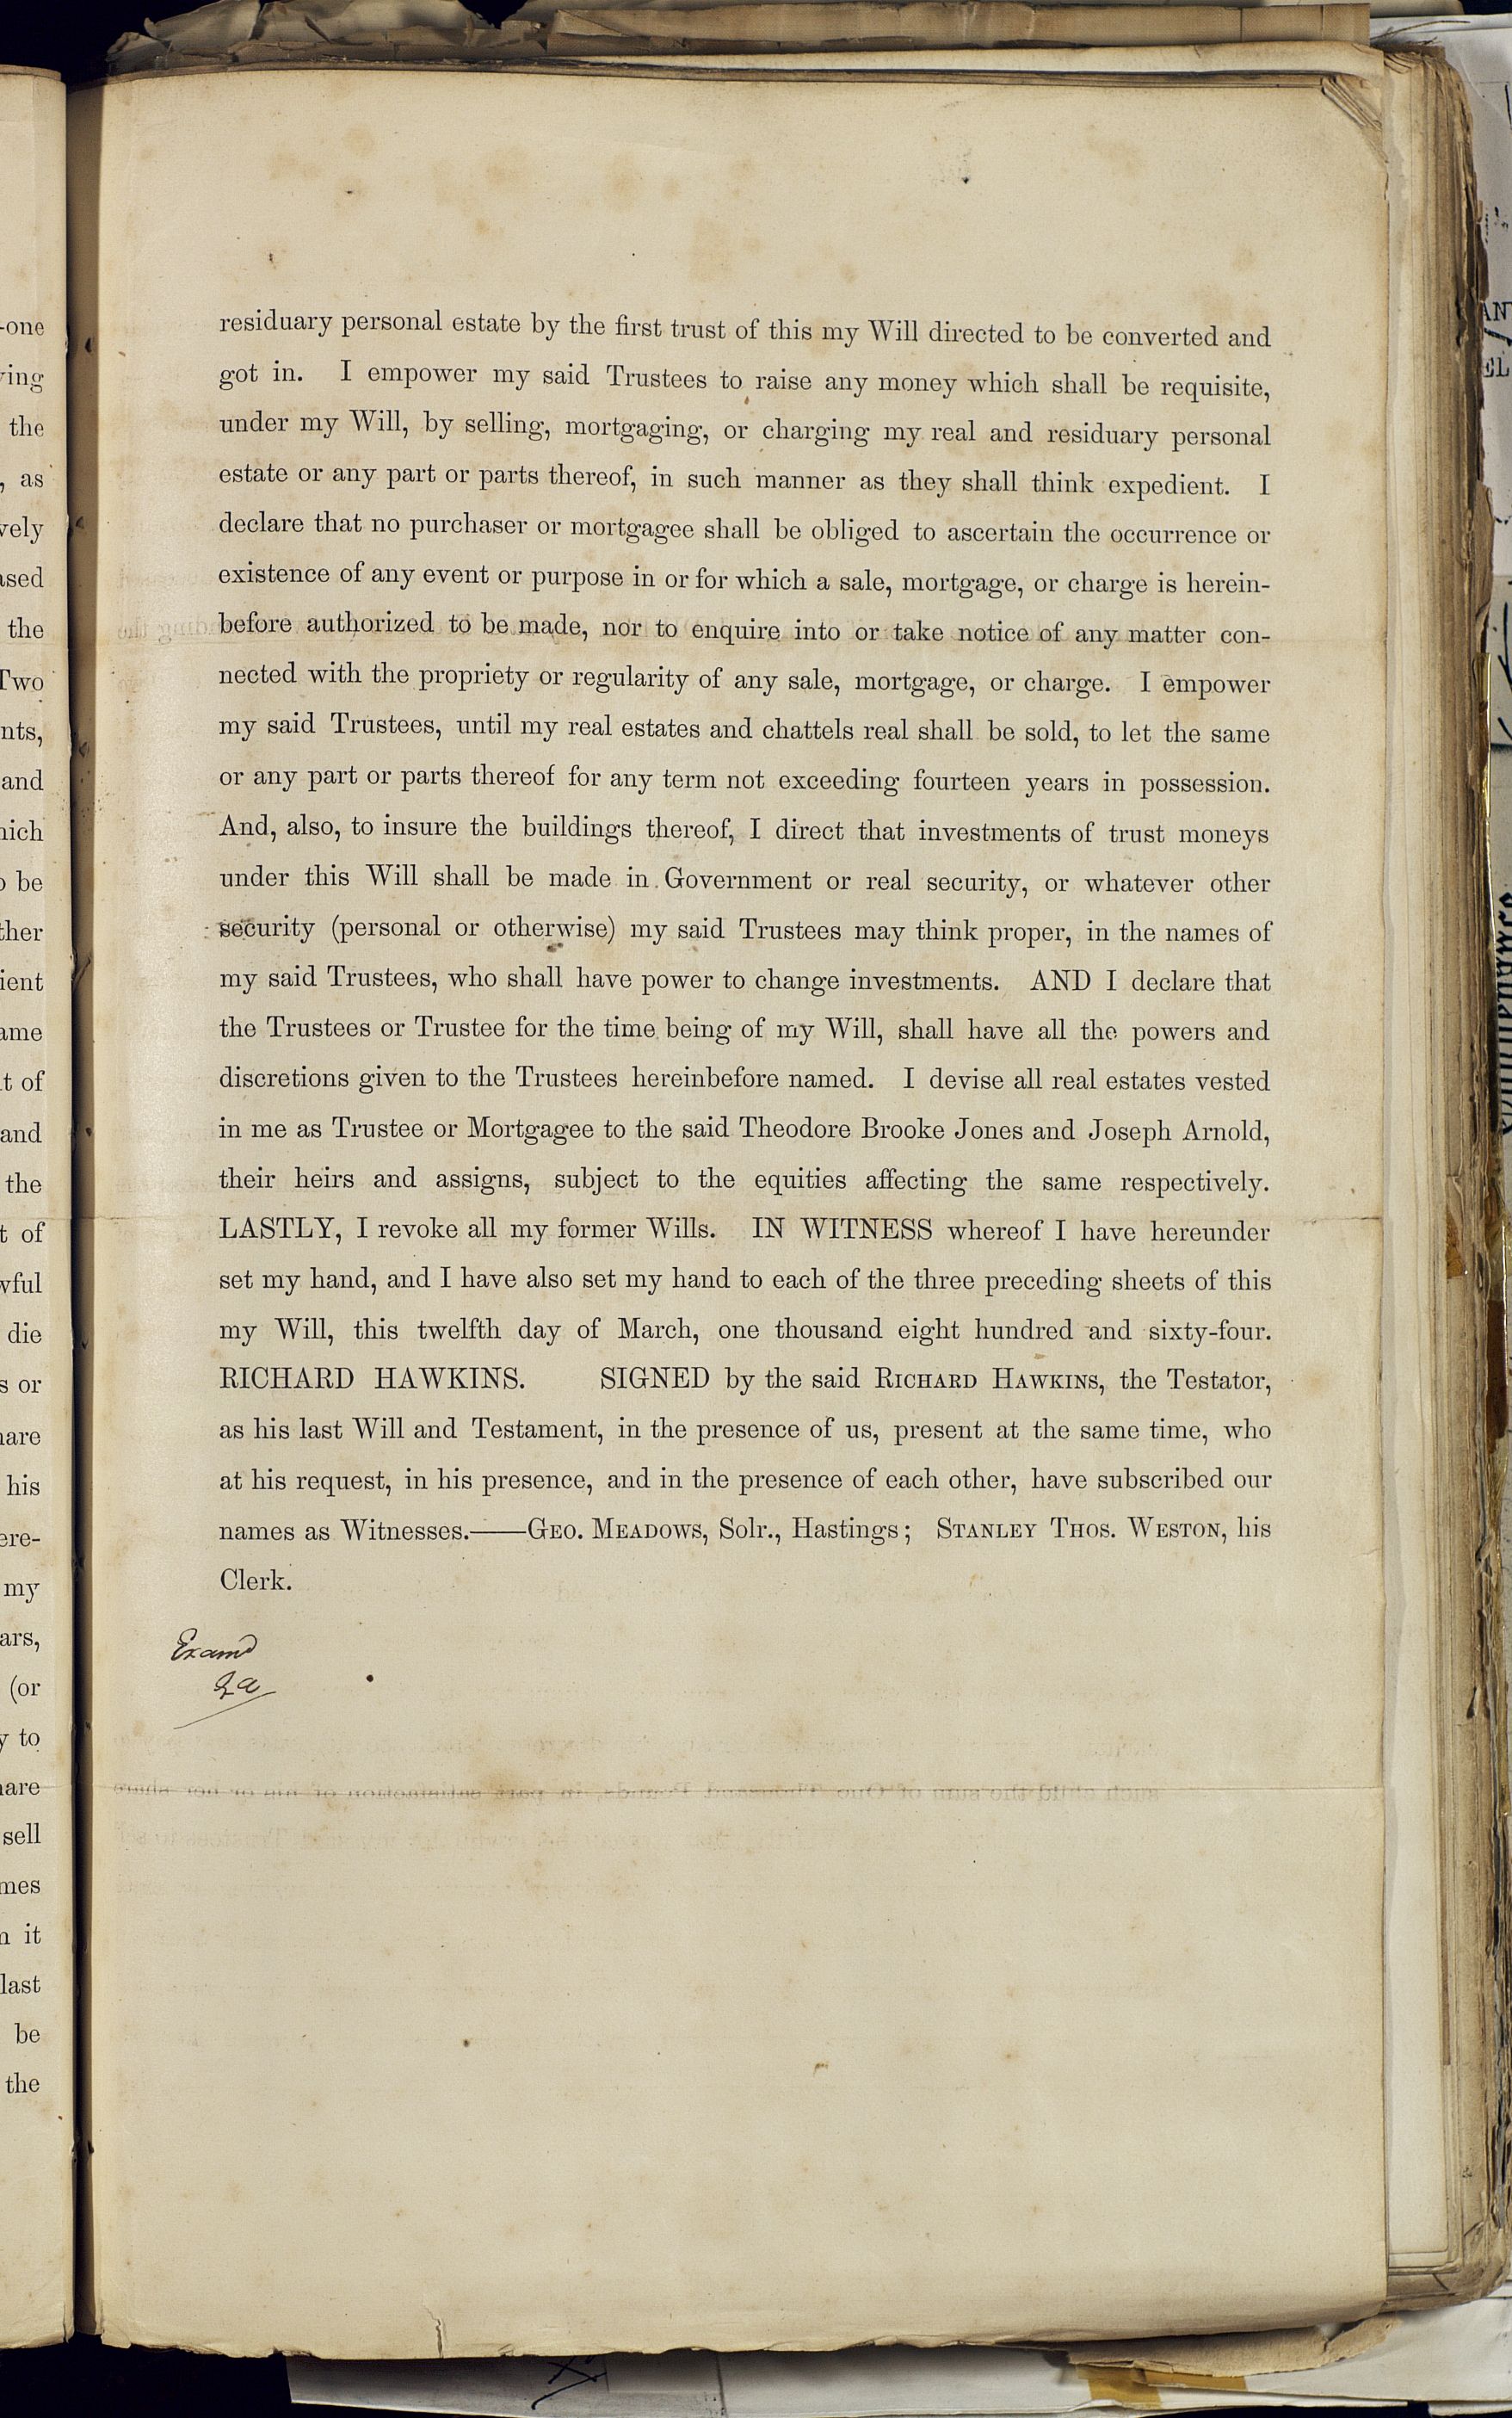 residuary personal estate by the first trust of this my Will directed to be converted and
got in. I empower my said Trustees to raise any money which shall be requisite,
under my Will, by selling, mortgaging, or charging my real and residuary personal
estate or any part or parts thereof, in such manner as they shall think expedient. I
declare that no purchaser or mortgagee shall be obliged to ascertain the occurrence or
existence of any event or purpose in or for which a sale, mortgage, or charge is herein-
before authorized to be made, nor to enquire into or take notice of any matter con-
nected with the propriety or regularity of any sale, mortgage, or charge. I empower
my said Trustees, until my real estates and chattels real shall be sold, to let the same
or any part or parts thereof for any term not exceeding fourteen years in possession.
And, also, to insure the buildings thereof, I direct that investments of trust moneys
under this Will shall be made in Government or real security, or whatever other
security (personal or otherwise) my said Trustees may think proper, in the names of
my said Trustees, who shall have power to change investments. AND I declare that
the Trustees or Trustee for the time being of my Will, shall have all the powers and
discretions given to the Trustees hereinbefore named. I devise all real estates vested
in me as Trustee or Mortgagee to the said Theodore Brooke Jones and Joseph Arnold,
their heirs and assigns, subject to the equities affecting the same respectively.
LASTLY, I revoke all my former Wills. IN WITNESS whereof I have hereunder
set my hand, and I have also set my hand to each of the three preceding sheets of this
my Will, this twelfth day of March, one thousand eight hundred and sixty-four.
RICHARD HAWKINS. SIGNED by the said RICHARD HAWKINS, the Testator,
as his last Will and Testament, in the presence of us, present at the same time, who
at his request, in his presence, and in the presence of each other, have subscribed our
names as Witnesses.——GEO. MEADOWS, Solr., Hastings; STANLEY THOS. WESTON, his
Clerk.
Examd